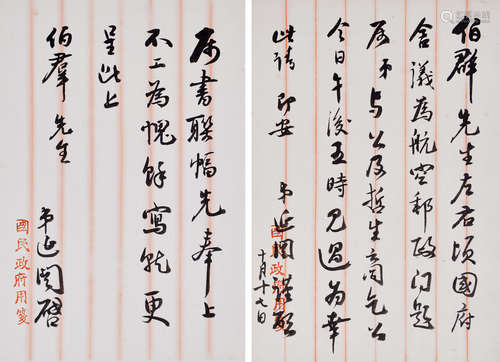 伯群先生左右頃國府
會議為航空郵政问題
属弟与公及哲生商乞公
今日午後五時見過為幸
此請 即安 弟延闓謹啟
十月十七日
國民政府用箋
属書聯幅先奉上
不工為愧餘寫就更
呈此上
伯羣先生
弟延闓啓
國民政府用箋